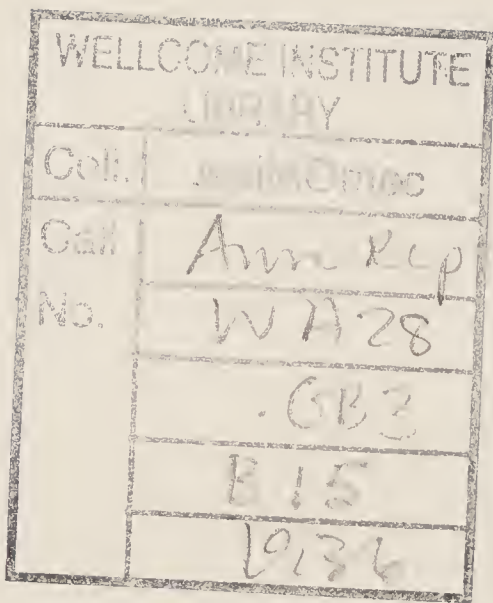 WELLCOME INSTITUTE
LIBRARY
Coll. welMOmec
Call Ann Rep
No. WA28
.GB3
B15
1936